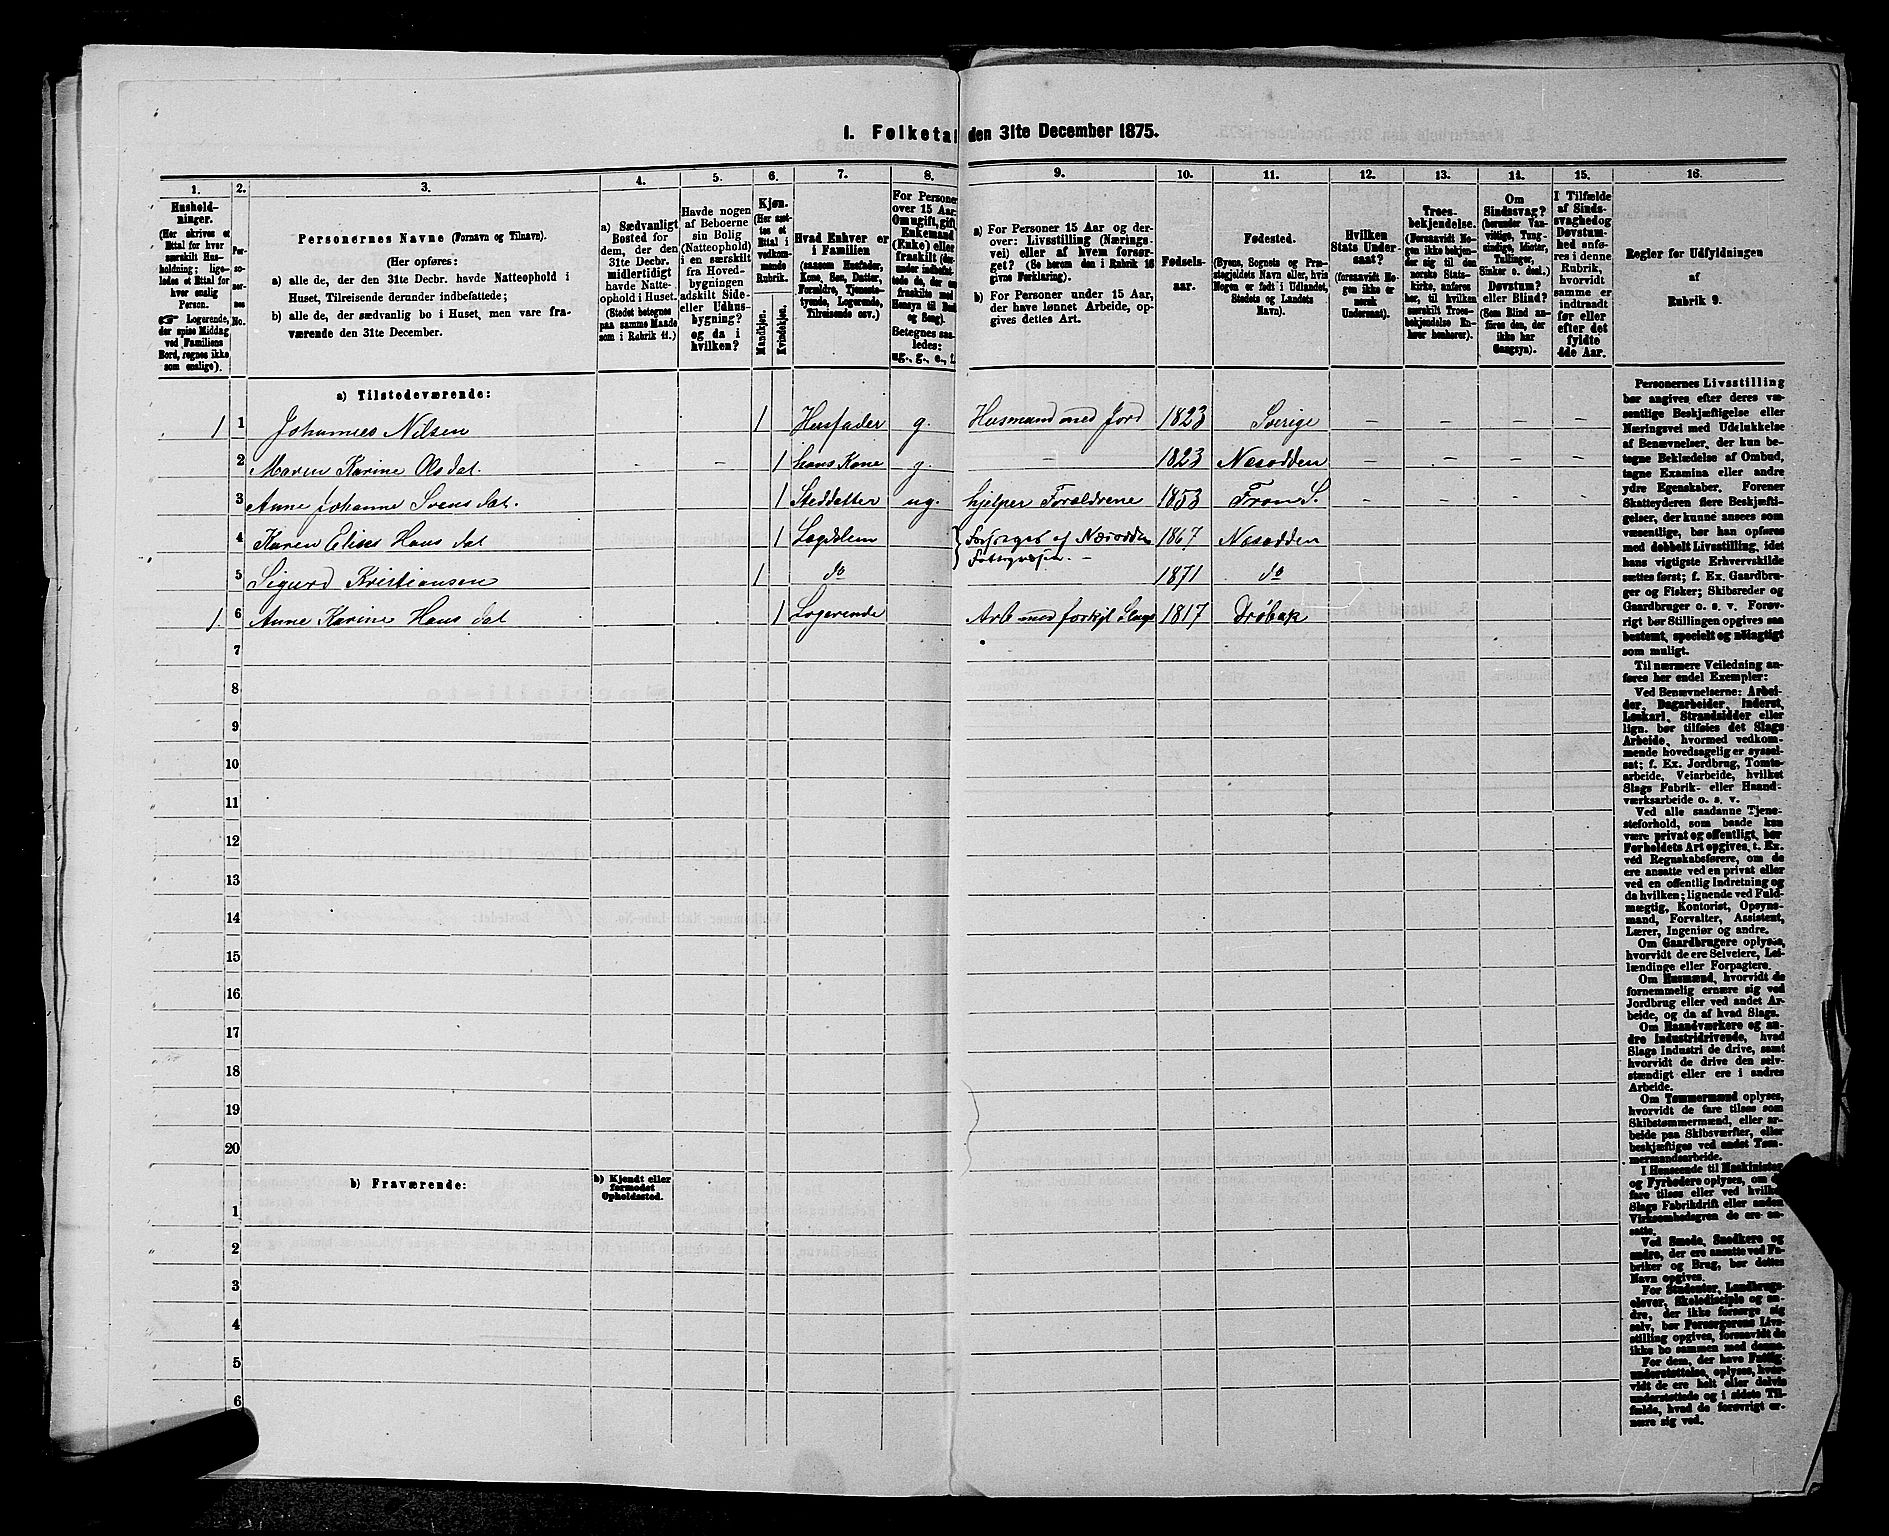 1. Folketal den 31te December 1875.
1. 2. 3. 4. 5. 6. 7. 8. 9. 10. 11. 12. 13. 14. 15. 16.
Hushold-
ninger.
(Her skrives et
Ettal for hver
særskilt Hus-
holdning; lige-
ledes et Ettal for
hver enslig
Person.
☞ Logerende,
der spise Middag
ved Familiens
Bord, regnes ikke
som enslige).
Per-
so-
ner-
nes
No.
Personernes Navne (Fornavn og Tilnavn).
(Her opføres:
a) alle de, der den 31te Decbr. havde Natteophold i
Huset, Tilreisende derunder indbefattede;
b) alle de, der sædvanlig bo i Huset, men vare fra-
værende den 31te December.
a) Sædvanligt
Bosted for
dem, der den
31te Decbr.
midlertidigt
havde Natte-
ophold i Huset.
(Stedet betegnes
paa samme Maade
som i Rubrik 11.)
Havde nogen
af Beboerne
sin Bolig
(Natteophold)
i en særskilt
fra Hoved-
bygningen
adskilt Side-
eller Udhus-
bygning?
og da i
hvilken?
Kjøn.
(Her sæt-
tes et
Ettal i
vedkom-
mende
Rubrik.
Mandkjøn.
Kvindekjøn.
Hvad Enhver er
i Familien
(saasom Husfader,
Kone, Søn, Datter,
Forældre, Tjeneste-
tyende, Logerende,
Tilreisende osv.)
For Personer
over 15 Aar:
Om ugift, gift,
Enkemand
(Enke) eller
fraskilt
Betegnes saa-
ledes:
ug., g., e., f.
a) For Personer 15 Aar og der-
over: Livsstilling (Nærings-
vei) eller af hvem forsør-
get? (Se herom den i Rubrik 16
givne Forklaring).
b) For Personer under 15 Aar,
der have lønnet Arbeide, op-
gives dettes Art.
Fødsels-
aar.
Fødested.
(Byens, Sognets og Præ-
stegjeldets Navn eller, hvis
Nogen er født i Udlandet,
Stedets og Landets
Navn).
Hvilken
Stats Under-
saat?
(forsaavidt No-
gen ikke er
norsk
Undersaat).
Troes-
bekjendelse.
(Forsaavidt No-
gen ikke bekjen-
der sig til den
norske Stats-
kirke, anføres
her, til hvilken
særskilt Troes-
bekjendelse En-
hver henhører).
Om
Sindssvag?
(herunder Van-
vittige, Tung-
sindige, Idioter,
Tullinger,
Sinker o. desl.)
Døvstum?
eller Blind?
(Som Blind an-
føres den, der
ikke har
Gangsyn).
I Tilfælde
af Sinds-
svaghed og
Døvstum-
hed anfø-
res i denne
Rubrik,
hvorvidt
samme er
indtraadt
før eller
efter det
fyldte
4de Aar.
Regler for Udfyldningen
af
Rubrik 9.
a) Tilstedeværende:
1 1 Johannes Nilsen 1 Husfader g. Husmand med Jord 1823 Sverige – – – –
2 Maren Karine Olsdat. – – 1 hans Kone g. – 1823 Nesodden – – – –
3 Anne Johanne Svensdat. 1 Steddatter ug. hjelper Forældrene 1853 Fron S. – – – –
4 Karen Elise Hansdat 1 Lægdslem Forsørges af Næsodden 1867 Nesodden
Fattigvæsen. –
5 Sigurd Kristiansen 1 do 1871 do
1. 6 Anne Karine Hansdat 1 Logerende Arb med forskjl Slags 1817 Drøbak
7
8
9
10
11
12
13
14
15
16
17
18
19
20
b) Fraværende:
b) Kjendt eller
formodet
Opholdssted.
1
2
3
4
5
6
Personernes Livsstilling
bør angives efter deres væ-
sentlige Beskjæftigelse eller
Næringsvei med Udelukkelse
af Benævnelser, der kun be-
tegne Beklædelse af Ombud,
tagne Examina eller andre
ydre Egenskaber. Forener
Skatteyderen flere Beskjæfti-
gelser, der kunne ansees som
væsentlige, bør han opføres
med dobbelt Livsstilling, idet
hans vigtigste Erhvervskilde
sættes først; f. Ex. Gaardbru-
ger og Fisker; Skibsreder og
Gaardbruger o. s. v. Forøv-
rigt bør Stillingen opgives saa
bestemt, specielt og nøiagtigt
som muligt.
Til nærmere Veiledning an-
føres her endel Exempler:
Ved Benævnelserne: Arbei-
der, Dagarbeider, Inderst,
Løskarl, Strandsidder eller
lign. bør tilføies det Slags
Arbeide, hvormed vedkom-
mende hovedsagelig er syssel-
sat; f. Ex. Jordbrug, Tomte-
arbeide, Veiarbeide, hvilket
Slags Fabrik- eller Haand-
værksarbeide o. s. v.
Ved alle saadanne Tjene-
steforhold, som baade kan
være privat og offentligt, bør
Forholdets Art opgives, t. Ex.
ved Regnskabsførere, om de
ere ansatte ved en privat eller
ved en offentlig Indretning og
da hvilken; lignende ved Fuld-
mægtig, Kontorist, Opsyns-
mand, Forvalter, Assistent,
Lærer, Ingeniør og andre.
Om Gaardbrugere oplyses,
hvorvidt de ere Selveiere, Lei-
lændinge eller Forpagtere.
Om Husmænd, hvorvidt de
fornemmelig ernære sig ved
Jordbrug eller ved andet Ar-
beide, og da af hvad Slags.
Om Haandværkere og an-
dre Industridrivende, hvad
Slags Industri de drive, samt
hvorvidt de drive den selv-
stændigt eller ere i andres
Arbeide.
Om Tømmermænd oplyses,
hvorvidt de fare tilsøs som
Skibstømmermænd, eller ar-
beide paa Skibsværfter, eller
beskjæftiges ved andet Tøm-
mermandsarbeide.
I Henseende til Maskinister
og Fyrbødere oplyses, om de
fare tilsøs eller ved hvilket
Slags Fabrikdrift eller anden
Virksomhedsgren de ere an-
satte.
Ved Smede, Snedkere og
andre, der ere ansatte ved Fa-
briker og Brug, bør dettes
Navn opgives.
For Studenter, Landbrugs-
elever, Skoledisciple og an-
dre, der ikke forsørge sig
selv, bør Forsørgerens Livs-
stilling opgives, forsaavidt de
ikke bo sammen med denne.
For dem, der have Fattig-
understøttelse, oplyses, hvor-
vidt de ere helt eller delvis
understøttede og i sidste Til-
fælde, hvad de forøvrigt er-
nære sig ved.